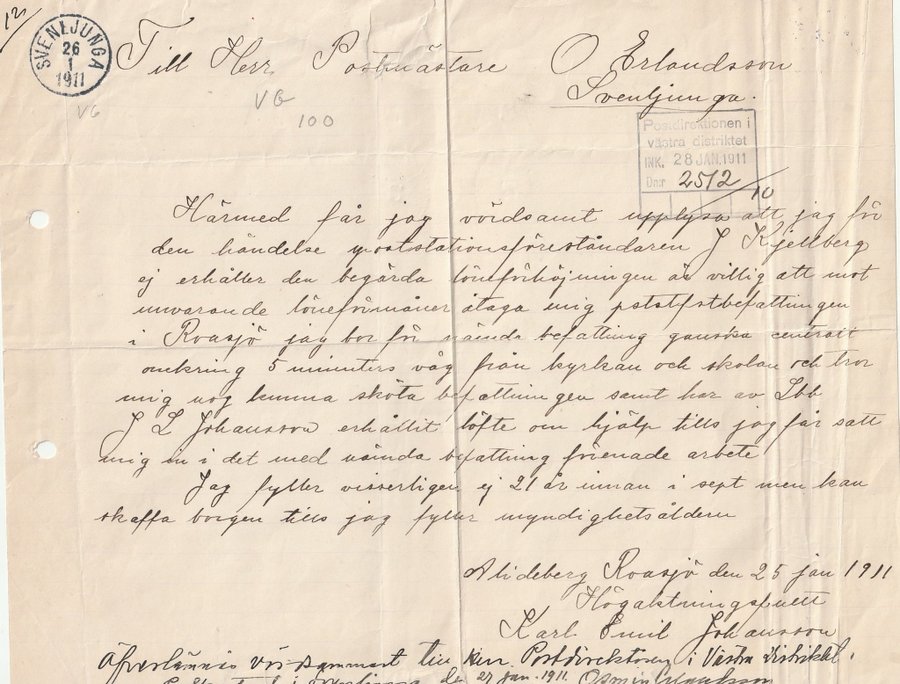 12
SVENLJUNGA
26
1
1911
Till Herr Postmästare O Erlandsson
Svenljunga.
VG
VG
100
Postdirektionen i
västra distriktet
INK. 28 JAN. 1911
Dnr 2512/10
Härmed får jag vördsamt upplysa att jag för
den händelse poststationsföreståndaren J Kjellberg
ej erhåller den begärda löneförhöjningen är villig att mot
nuvarande löneförmåner åtaga mig pststfstbefattningen
i Roasjö jag bor för nämda befattning ganska centralt
omkring 5 minuters väg från kyrkan och skolan och tror
mig nog kunna sköta befattningen samt har av Lbb
J L Johansson erhållit löfte om hjälp tills jag får satt
mig in i det med nämda befattning förenade arbete
Jag fyller visserligen ej 21 år innan i sept men kan
skaffa borgen tills jag fyller myndighetsåldern
Alideberg Roasjö den 25 jan 1911
Högaktningsfullt
Karl Emil Johansson
Öfverlämnas vördsammast till Kungl. Postdirektionen i Västra distriktet.
den 27 jan. 1911